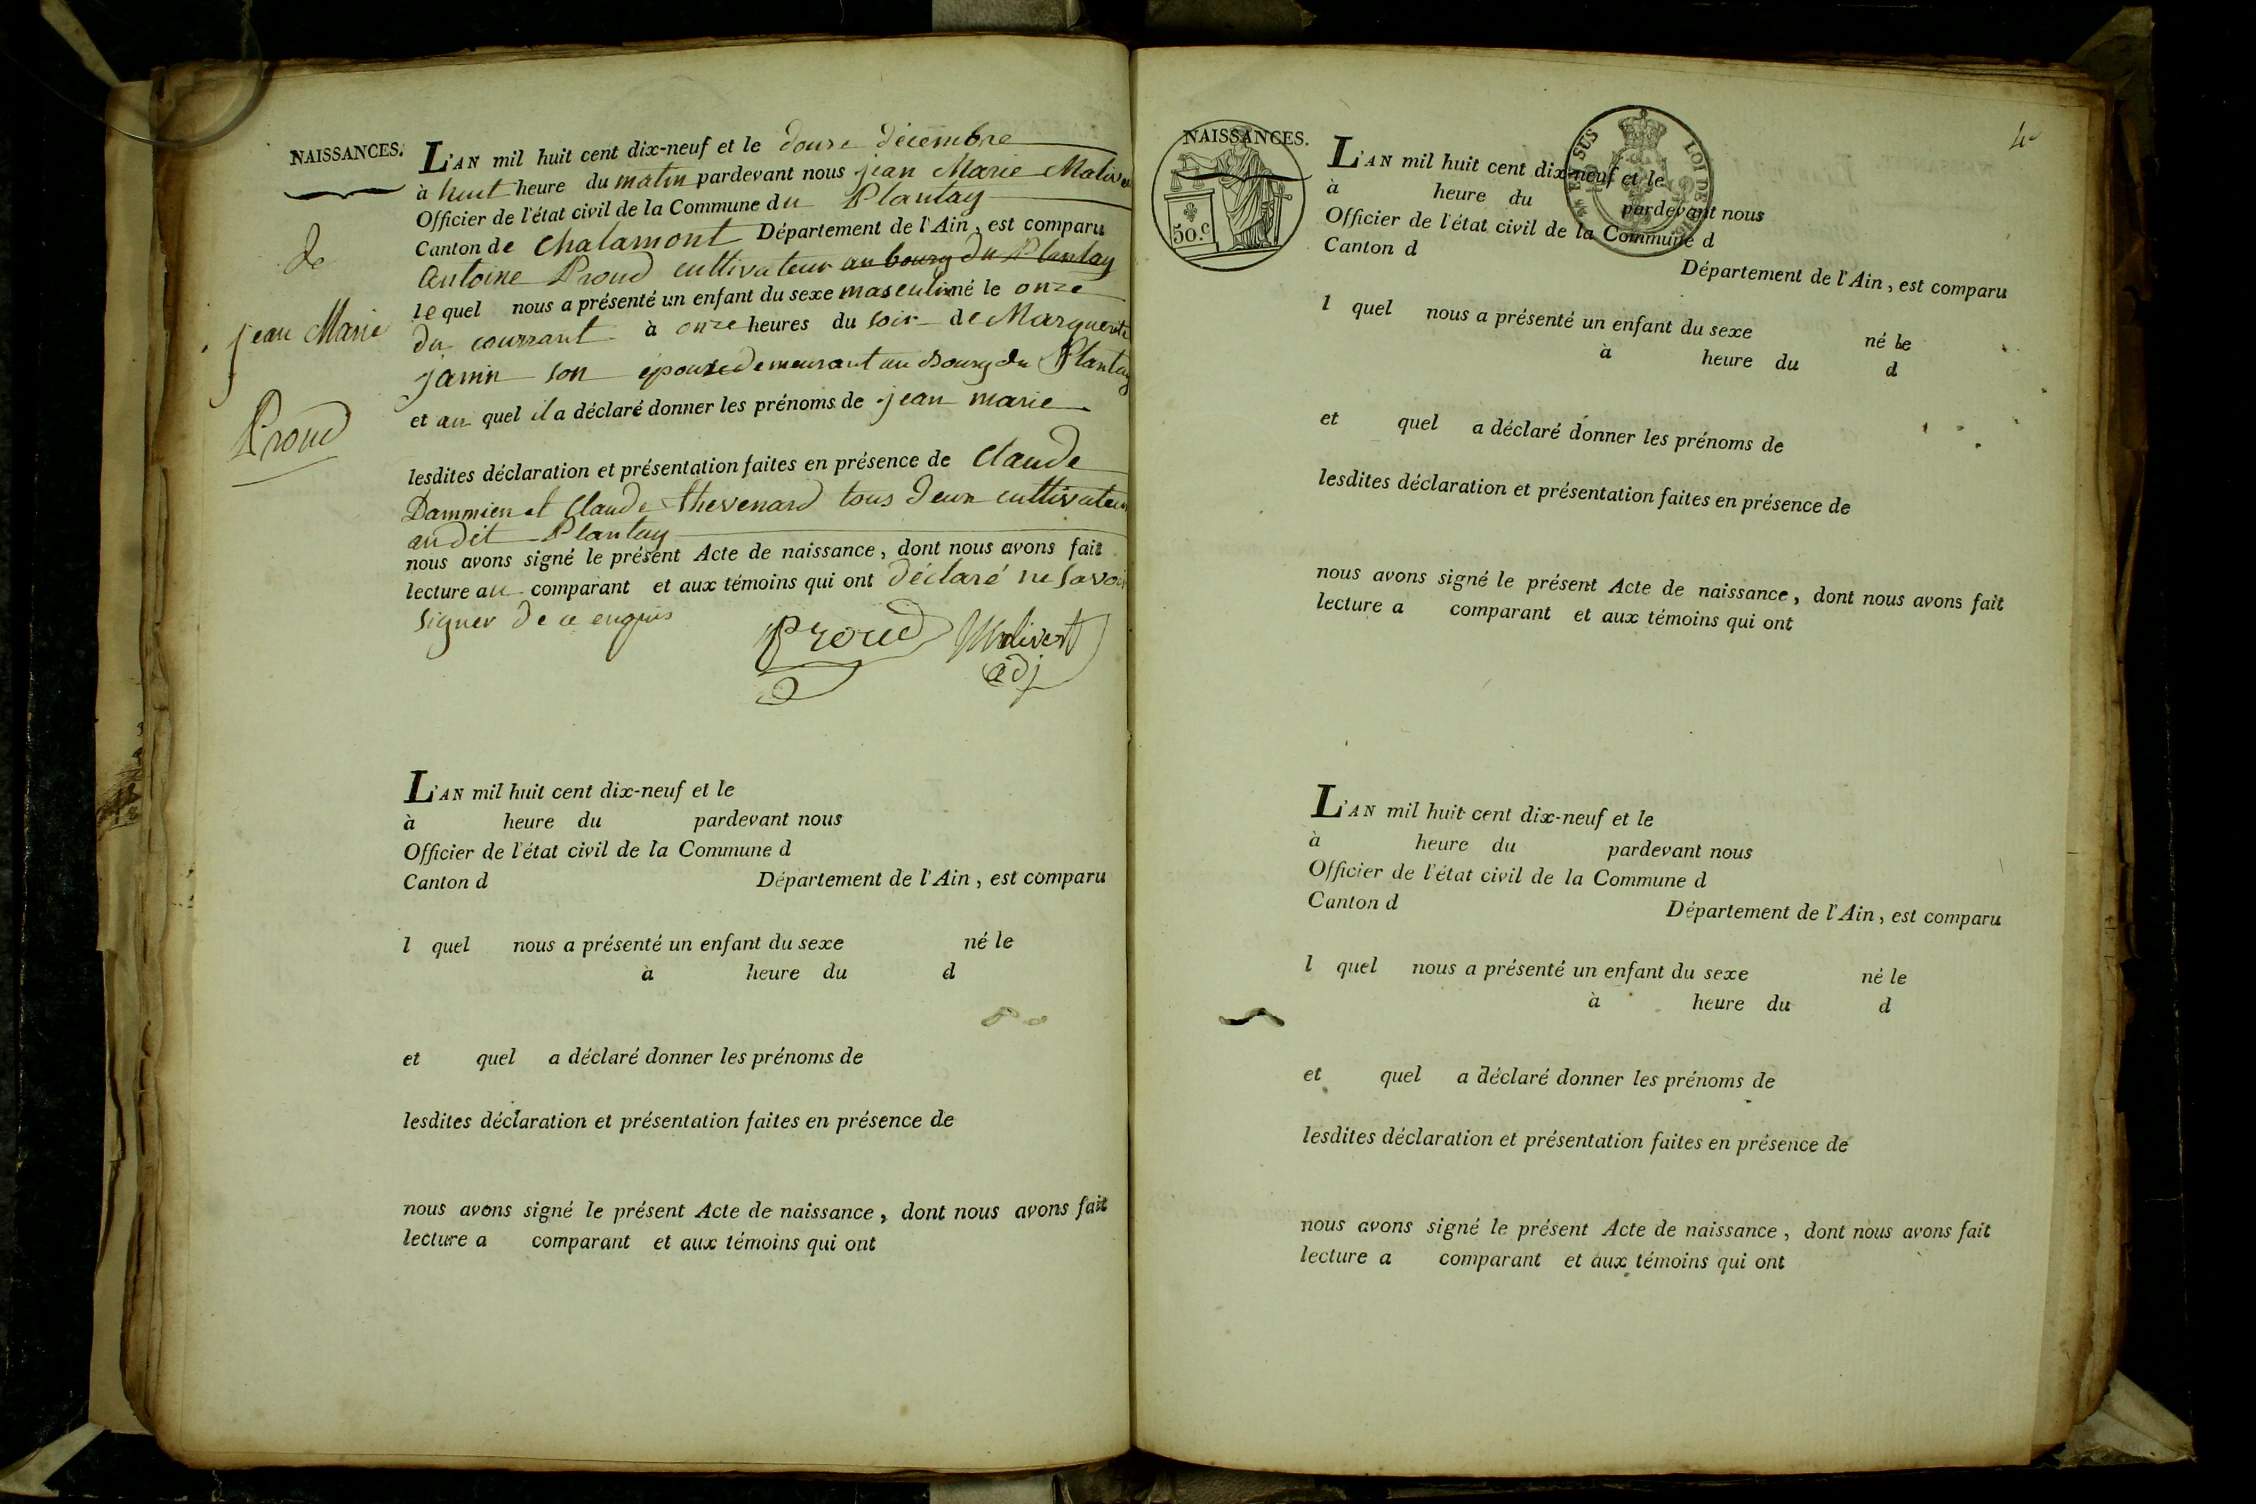 NAISSANCES.
de
jean Marie
Proud
L'AN mil huit cent dix-neuf et le douze décembre
à huit heure du matin pardevant nous jean Marie Maliver
Officier de l'état civil de la Commune du Plantay
Canton de chalamont Département de l'Ain, est comparu
antoine Proud cultivateur au bourg du Plantay
le quel nous a présenté un enfant du sexe masculin né le onze
du courrant à onze heures du soir de Marguerite
janin son épouze demeurant au Bourg du Plantay
et au quel il a déclaré donner les prénoms de jean marie
lesdites déclaration et présentation faites en présence de claude
Dammien et Claude thevenard tous deux cultivateur
au dit Plantay
nous avons signé le présent Acte de naissance, dont nous avons fait
lecture au comparant et aux témoins qui ont déclaré ne savoir
signer de ce enquis
Proud Malivert
adj
L'AN mil huit cent dix-neuf et le
à heure du pardevant nous
Officier de l'état civil de la Commune d
Canton d Département de l'Ain, est comparu
l quel nous a présenté un enfant du sexe né le
à heure du d
et quel a déclaré donner les prénoms de
lesdites déclaration et présentation faites en présence de
nous avons signé le présent Acte de naissance, dont nous avons fait
lecture a comparant et aux témoins qui ont
NAISSANCES.
50.c
EN SUS
LOI DE
L'AN mil huit cent dix-neuf et le
à heure du pardevant nous
Officier de l'état civil de la Commune d
Canton d
Département de l'Ain, est comparu
l quel nous a présenté un enfant du sexe né le
à heure du d
et quel a déclaré donner les prénoms de
lesdites déclaration et présentation faites en présence de
nous avons signé le présent Acte de naissance, dont nous avons fait
lecture a comparant et aux témoins qui ont
L'AN mil huit cent dix-neuf et le
à heure du pardevant nous
Officier de l'état civil de la Commune d
Canton d Département de l'Ain, est comparu
l quel nous a présenté un enfant du sexe né le
à heure du d
et quel a déclaré donner les prénoms de
lesdites déclaration et présentation faites en présence de
nous avons signé le présent Acte de naissance, dont nous avons fait
lecture a comparant et aux témoins qui ont